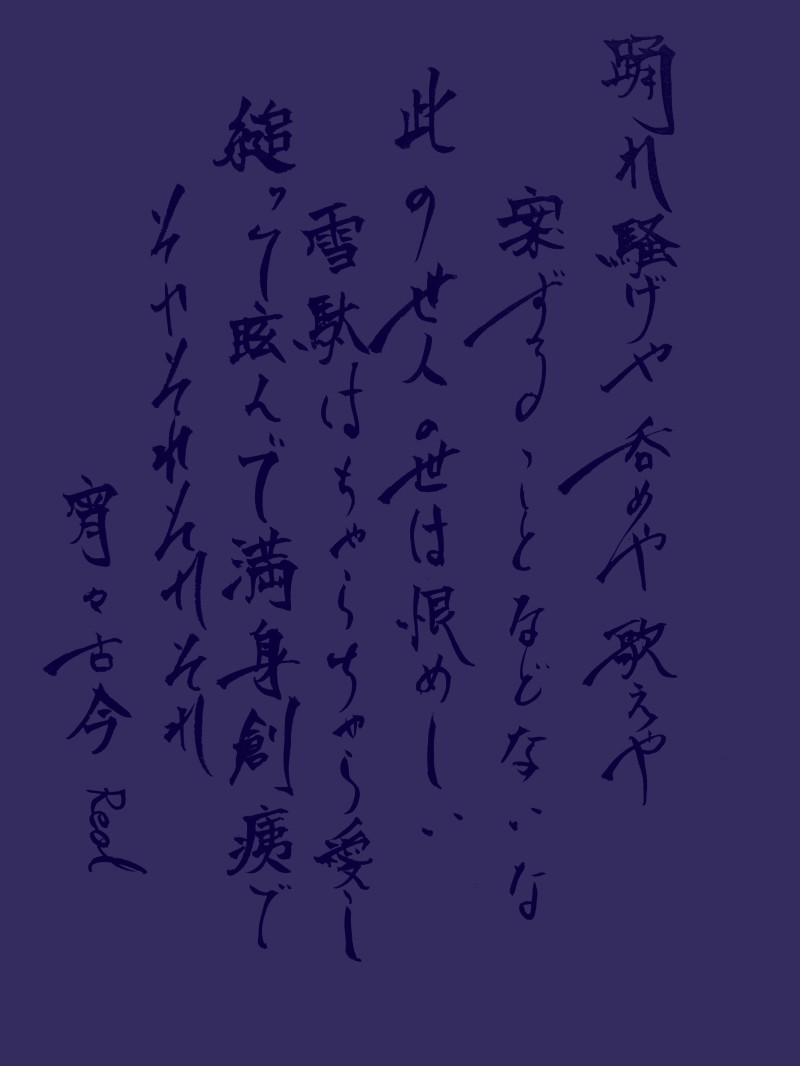 踊れ騒げや呑めや歌えや
案ずることなどないな
此の世人の世は恨めしい
雪駄はちゃらちゃら愛し
縋って眩んで満身創痍で
そやそれそれそれ
宵々古今 Real